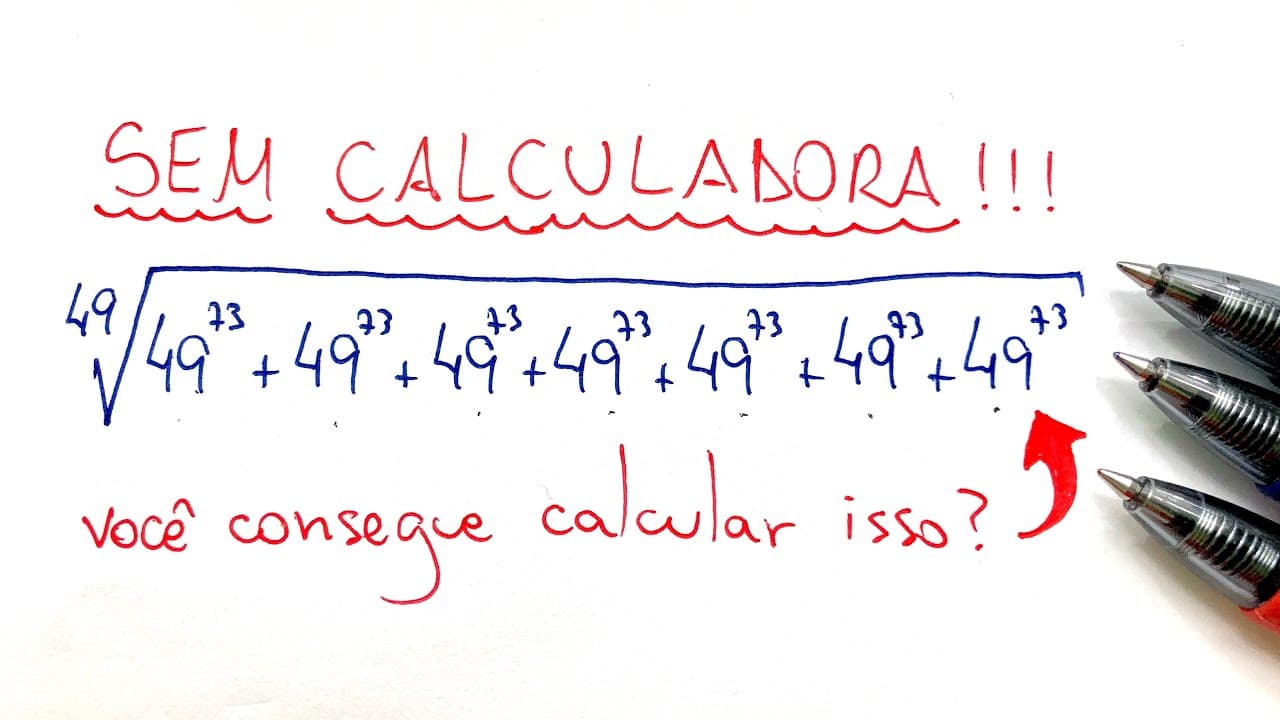 SEM CALCULADORA!!!
⁴⁹√49⁷³ + 49⁷³ + 49⁷³ + 49⁷³ + 49⁷³ + 49⁷³ + 49⁷³
você consegue calcular isso?